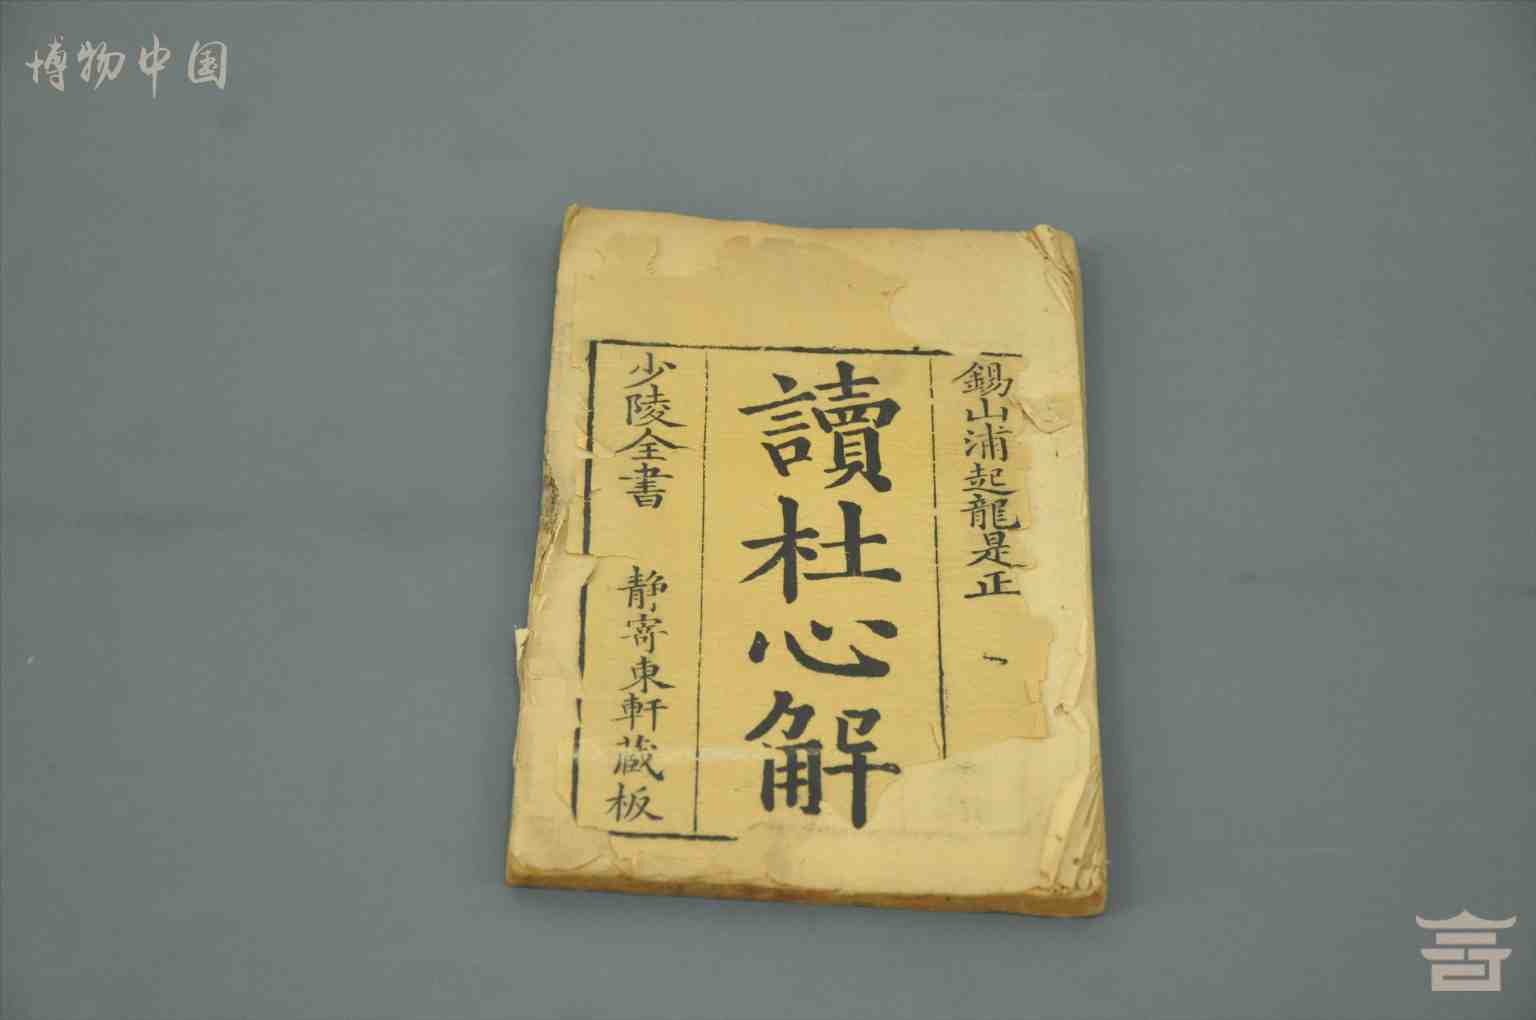 博物中国
錫山浦起龍是正
讀杜心解
少陵全書 静寄東軒蔵板